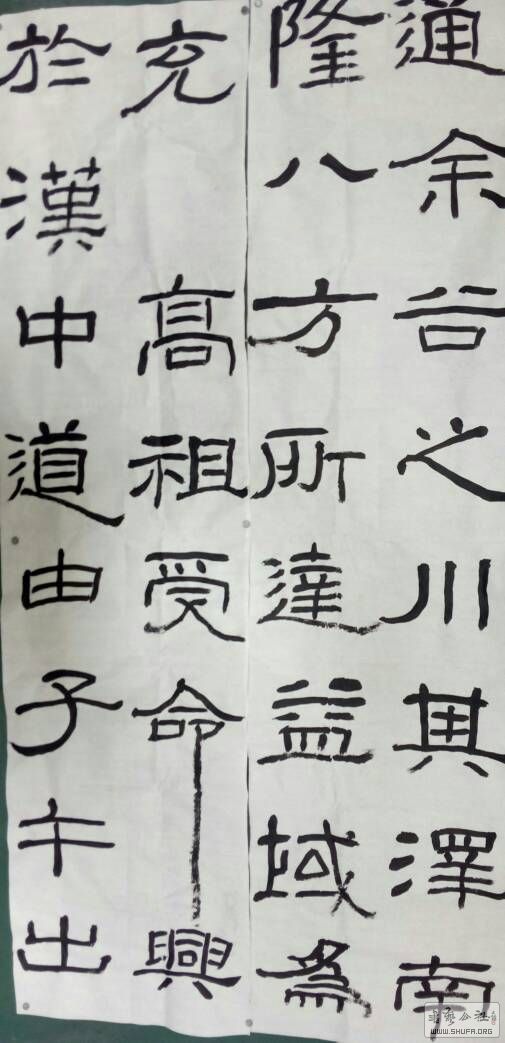 通余谷之川其澤南
隆八方所達益域為
充高祖受命興
於漢中道由子午出
WWW.SHUFA.ORG